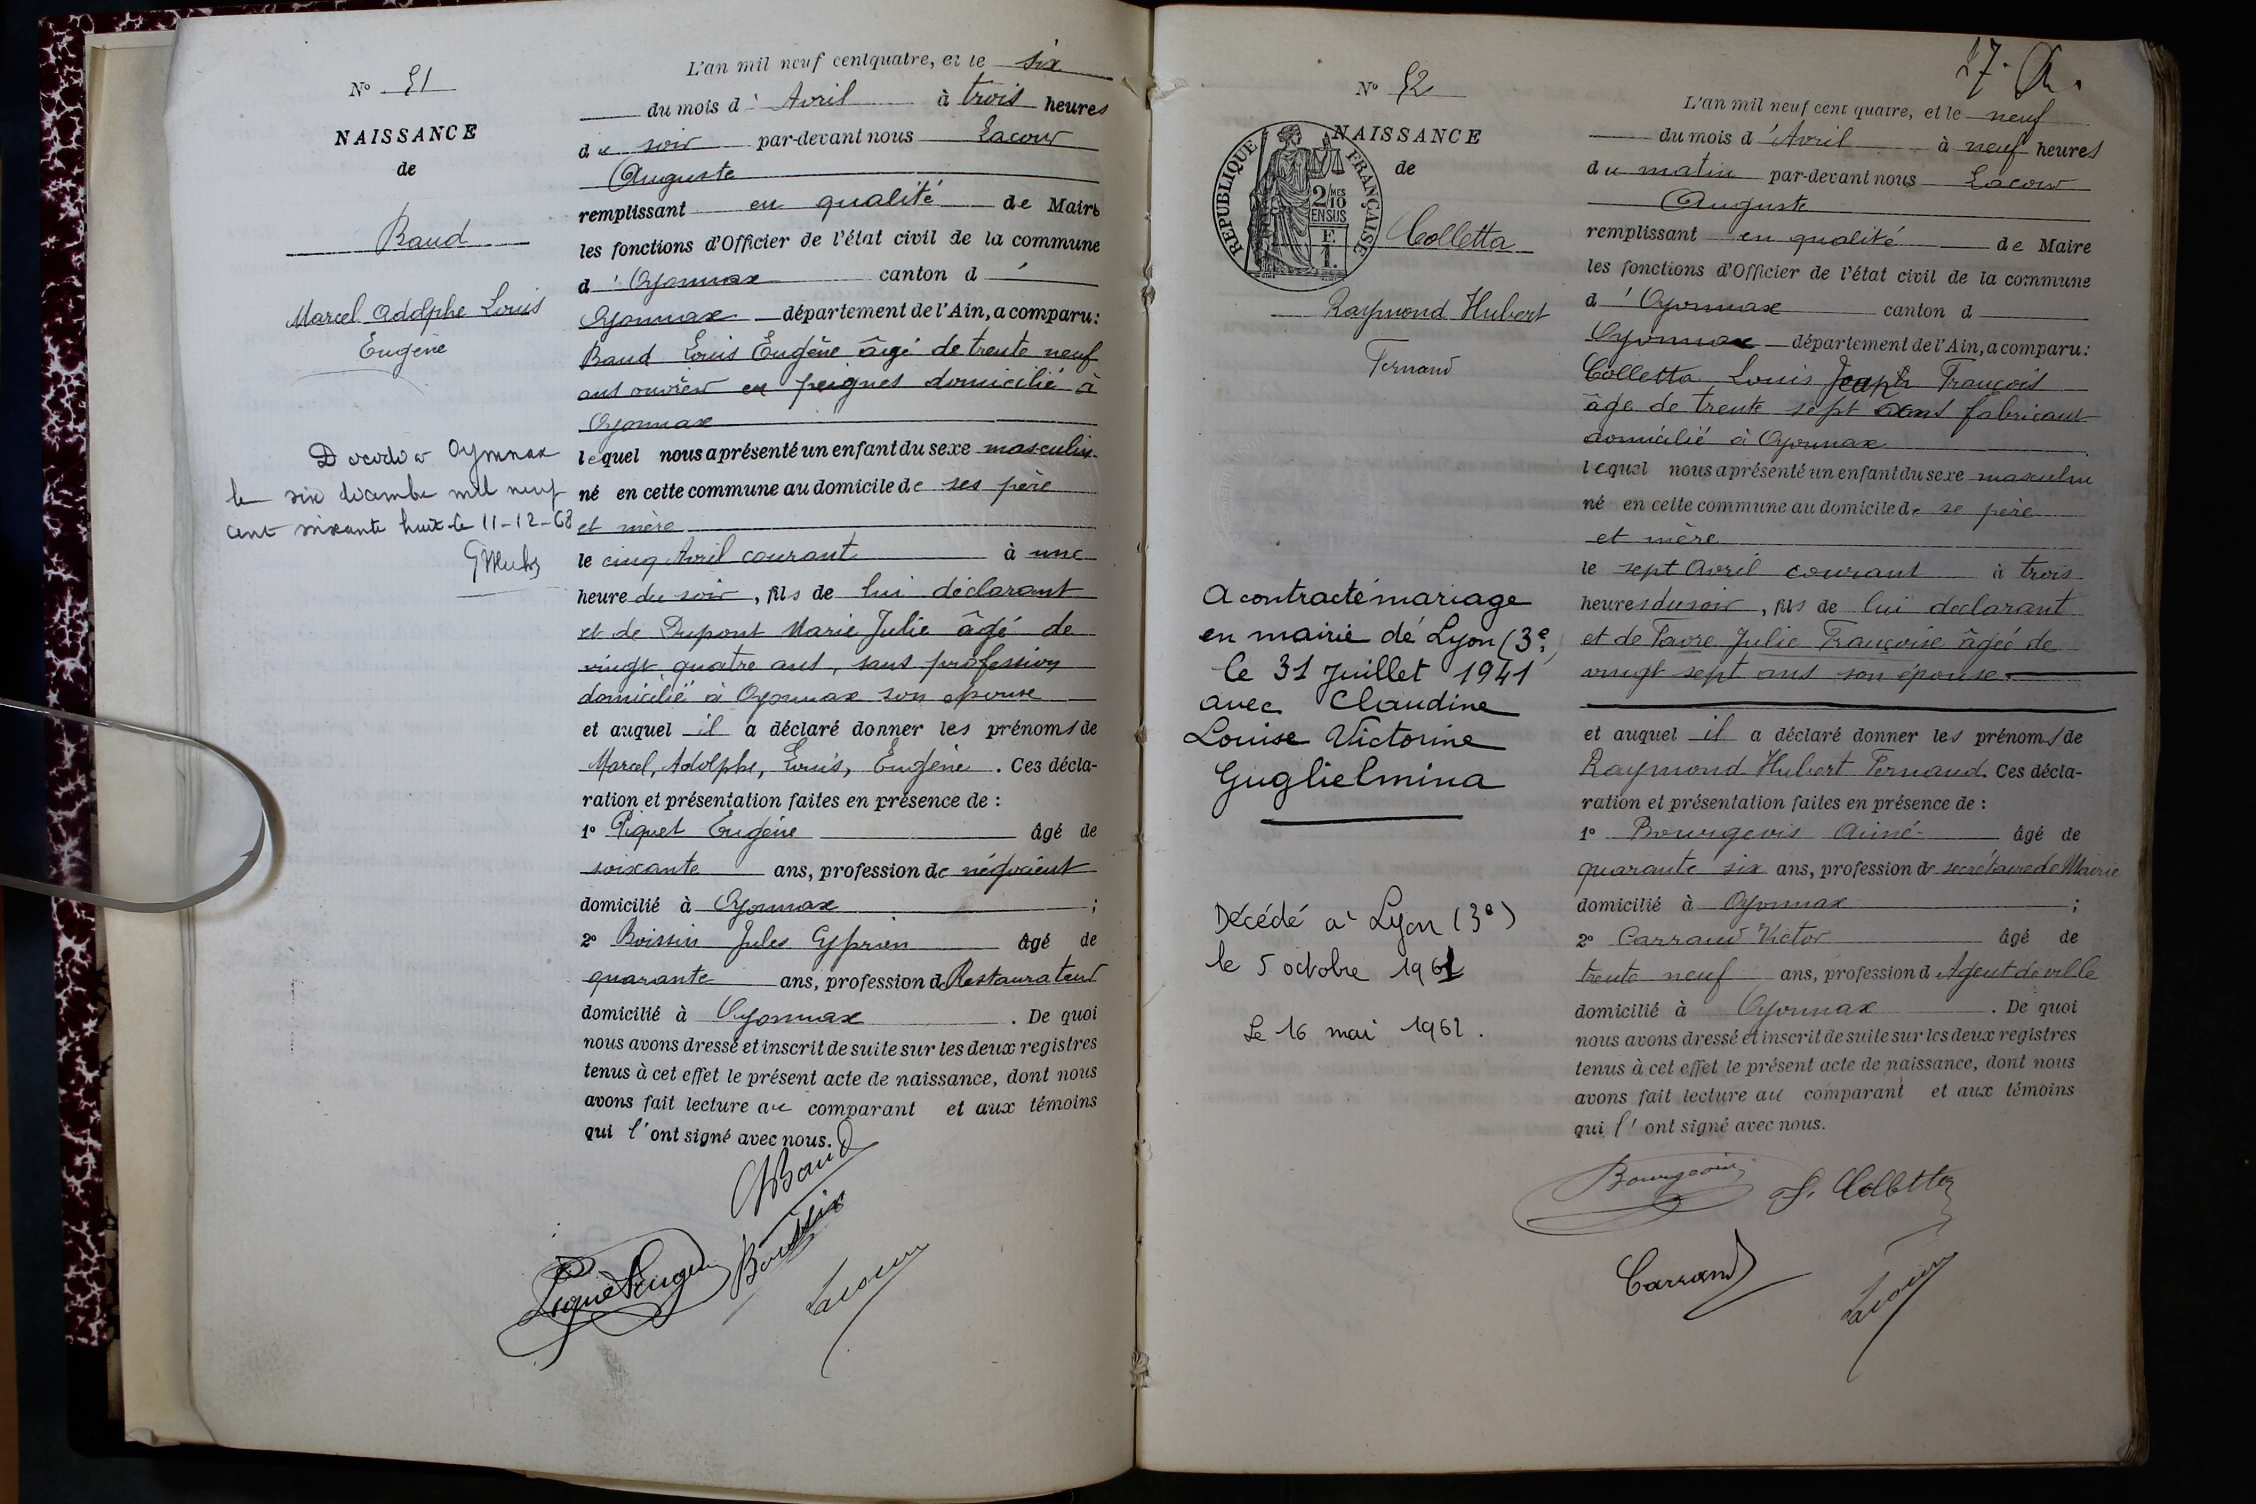 N° 51
NAISSANCE
de
Baud
Marcel Adolphe Louis
Eugène
Décédé à Oyonnax
le six décembre mil neuf
cent soixante huit le 11-12-68
L'an mil neuf cent quatre, et le six
du mois d' Avril à trois heures
du soir par-devant nous Lacour
Auguste
remplissant en qualité de Maire
les fonctions d'Officier de l'état civil de la commune
d'Oyonnax canton d'
Oyonnax département de l'Ain, a comparu:
Baud Louis Eugène âgé de trente neuf
ans ouvrier en peignes domicilié à
Oyonnax
lequel nous a présenté un enfant du sexe masculin
né en cette commune au domicile de ses père
et mère
le cinq Avril courant à une
heure du soir, fils de lui déclarant
et de Dupont Marie Julie âgé de
vingt quatre ans, sans profession
domicilié à Oyonnax son épouse
et auquel il a déclaré donner les prénoms de
Marcel, Adolphe, Louis, Eugène. Ces décla-
ration et présentation faites en présence de :
1° Piquet Eugène âgé de
soixante ans, profession de négociant
domicilié à Oyonnax ;
2° Boissin Jules Cyprien âgé de
quarante ans, profession de Restaurateur
domicilié à Oyonnax. De quoi
nous avons dressé et inscrit de suite sur les deux registres
tenus à cet effet le présent acte de naissance, dont nous
avons fait lecture au comparant et aux témoins
qui l'ont signé avec nous.
Baud
Piquet Eugène Boissin
Lacour
27.
N° 52
NAISSANCE
de
REPUBLIQUE FRANÇAISE
2/10 MES
EN SUS
F.
1.
Colletta
Raymond Hubert
Fernand
A contracté mariage
en mairie de Lyon (3e)
le 31 Juillet 1941
avec Claudine
Louise Victorine
Guglielmina
Décédé à Lyon (3e)
le 5 octobre 1961
Le 16 mai 1962.
L'an mil neuf cent quatre, et le neuf
du mois d'Avril à neuf heures
du matin par-devant nous Lacour
Auguste
remplissant en qualité de Maire
les fonctions d'Officier de l'état civil de la commune
d'Oyonnax canton d
Oyonnax département de l'Ain, a comparu:
Colletta Louis Joseph François
âgé de trente sept ans fabricant
domicilié à Oyonnax
lequel nous a présenté un enfant du sexe masculin
né en cette commune au domicile de se père
et mère
le sept Avril courant à trois
heures du soir, fils de lui déclarant
et de Favre Julie Françoise âgée de
vingt sept ans son épouse.
et auquel il a déclaré donner les prénoms de
Raymond Hubert Fernand. Ces décla-
ration et présentation faites en présence de :
1° Bourgeois Aimé âgé de
quarante six ans, profession de secrétaire de Mairie
domicilié à Oyonnax ;
2° Carraud Victor âgé de
trente neuf ans, profession d'Agent de ville
domicilié à Oyonnax. De quoi
nous avons dressé et inscrit de suite sur les deux registres
tenus à cet effet le présent acte de naissance, dont nous
avons fait lecture au comparant et aux témoins
qui l'ont signé avec nous.
Bourgeois Colletta
Carraud
Lacour